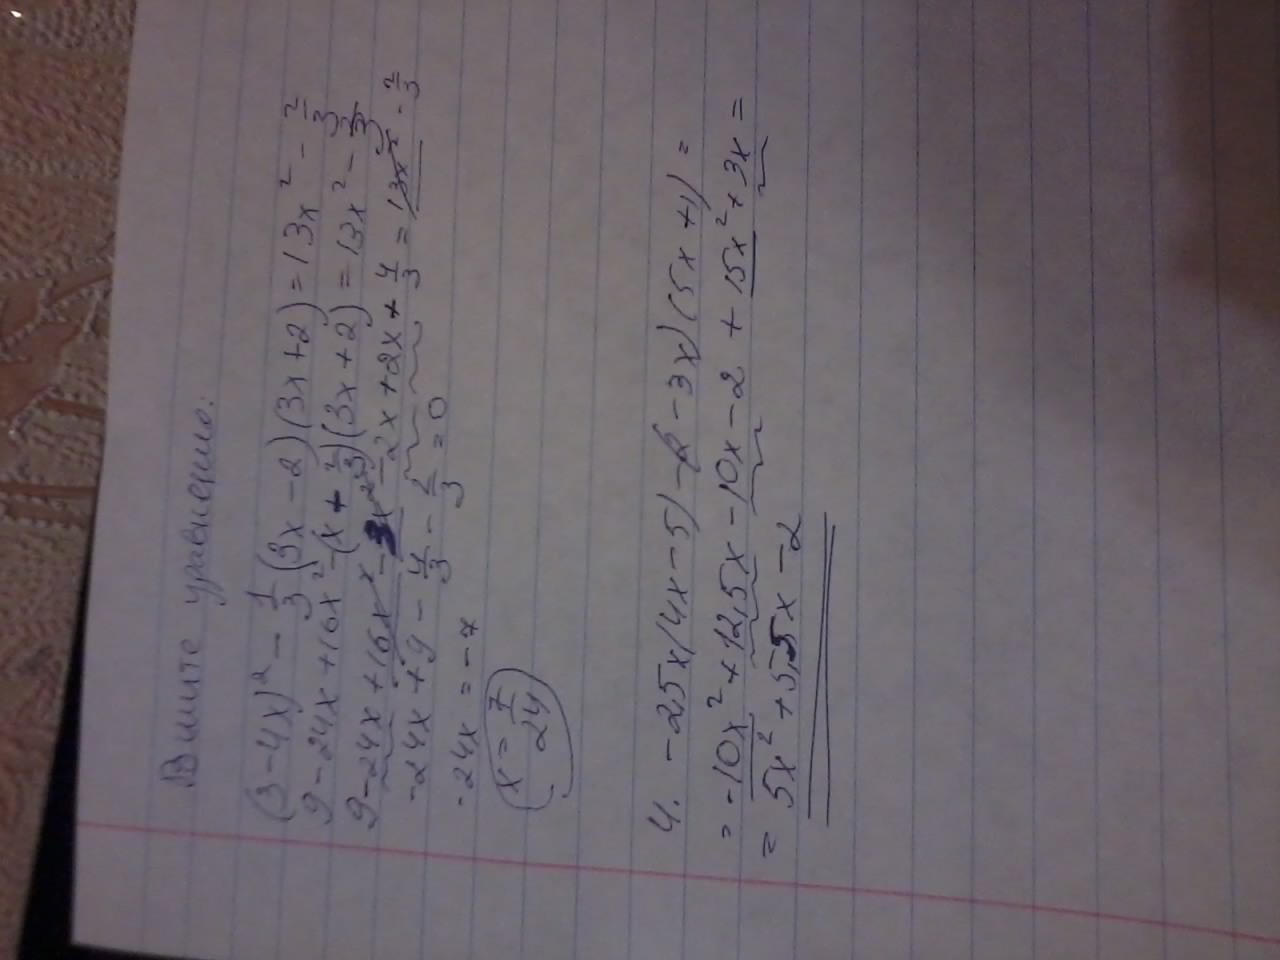 Решите уравнение:
(3-4x)² - 1/3 (3x-2)(3x+2) = 13x² - 2/3
9-24x+16x² - (x + 2/3)(3x+2) = 13x² - 2/3
9-24x+16x² - 3x² - 2x+2x+ 4/3 = 13x² - 2/3
-24x+9 - 4/3 - 2/3 = 0
-24x = -7
x = 7/24
4. -2,5x(4x-5) - (2-3x)(5x+1) =
= -10x² + 12,5x - 10x - 2 + 15x² + 3x =
= 5x² + 5,5x - 2